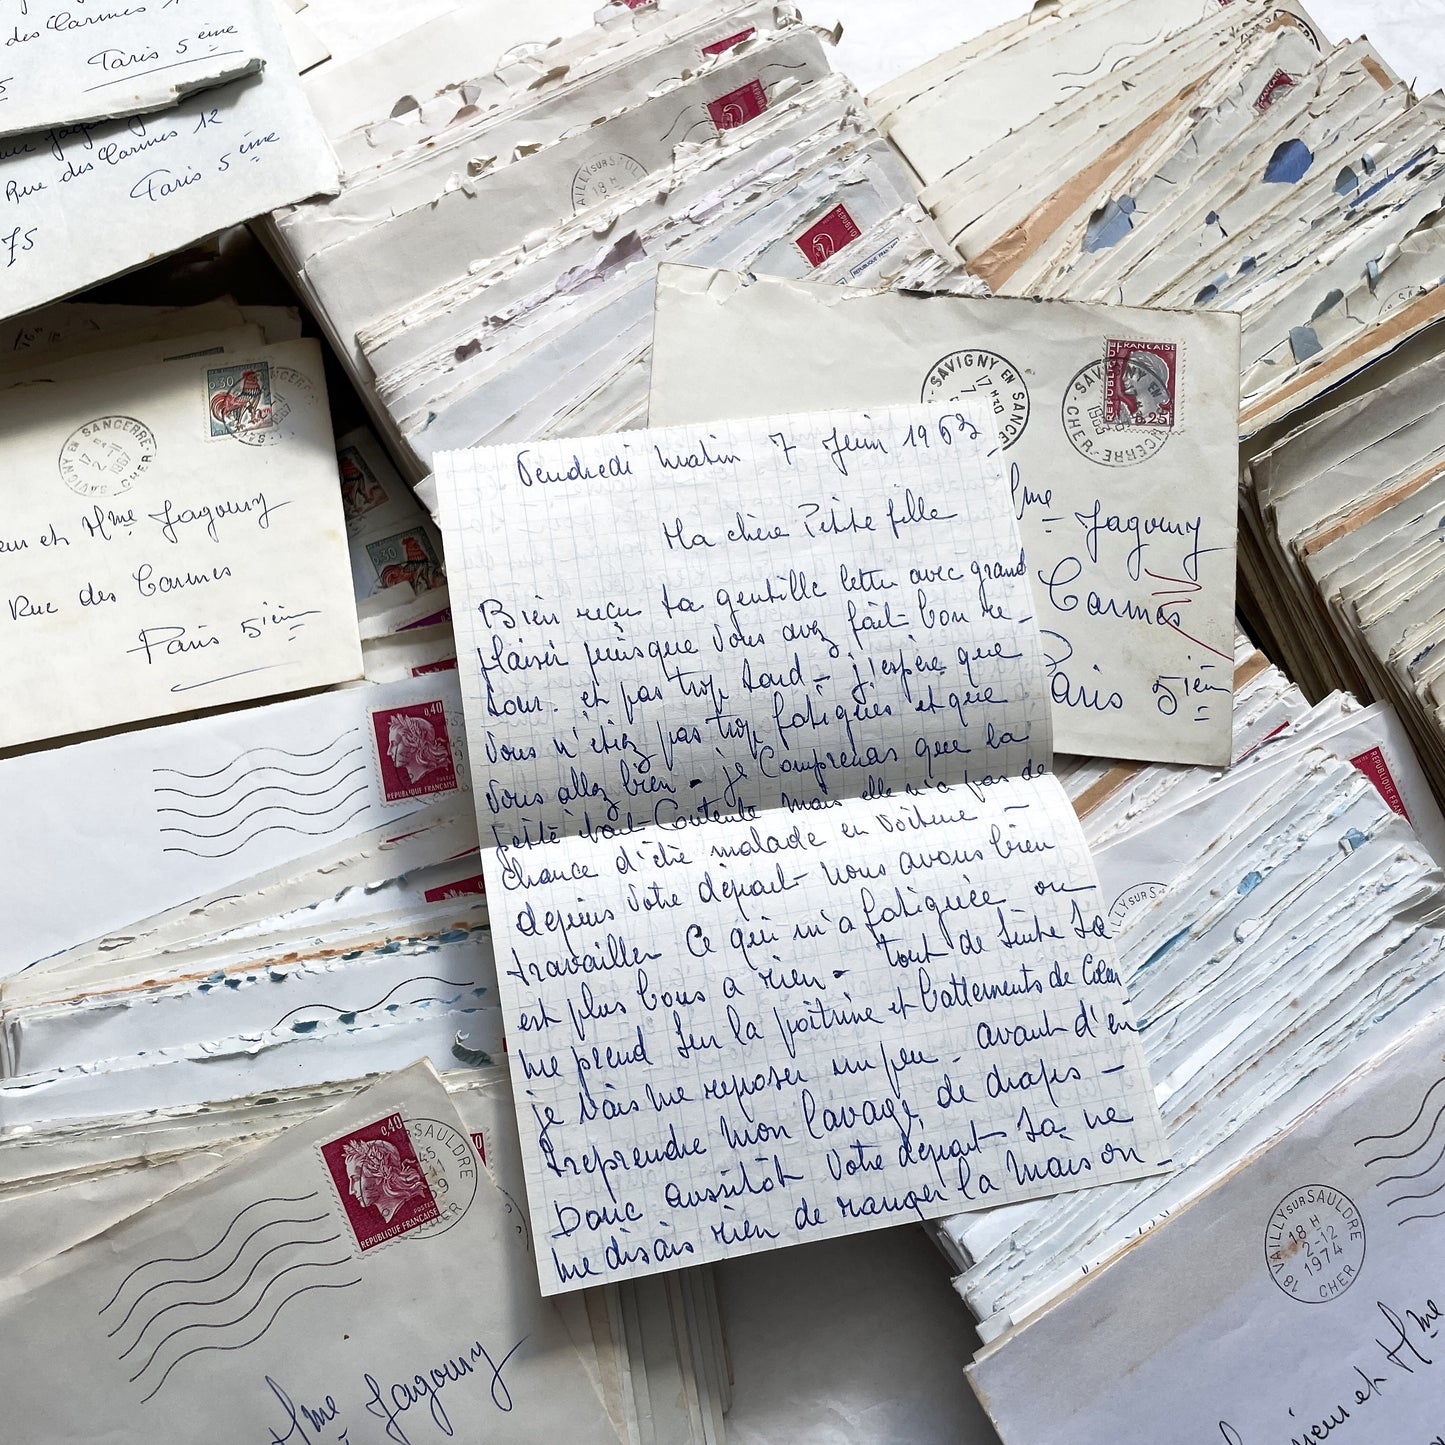 des Carmes 1
Paris 5 ème
Rue des Carmes 12
Paris 5 ème
75
RÉPUBLIQUE FRANÇAISE
SAVIGNY EN SANCERRE
CHER
0,25
Mme Jagoury
Carmes
Paris 5 ièm
0,30
SAVIGNY EN SANCERRE
CHER
1967
et Mme Jagoury
Rue des Carmes
Paris 5 ièm
Vendredi matin 7 Juin 1963
Ma chère Petite fille
Bien reçu ta gentille lettre avec grand
plaisir puisque vous avez fait bon re-
tour. et pas trop tard - j'espère que
vous n'étiez pas trop fatigués et que
vous allez bien - je comprenas que la
petite était contente mais elle n'a pas de
chance d'être malade en voiture -
depuis votre départ nous avons bien
travailler ce qui m'a fatiguée on
est plus bons a rien - tout de suite sa
me prend sur la poitrine et battements de Cœur
je vais me reposer un peu - avant d'en
treprendre mon lavage de draps -
Donc aussitôt votre départ sa ne
me disais rien de ranger la maison -
0,40
POSTES
RÉPUBLIQUE FRANÇAISE
0,40
POSTES
RÉPUBLIQUE FRANÇAISE
SAULDRE
CHER
Mme Jagoury
18 VAILLY SUR SAULDRE
18 H
2-12
1974
CHER
et Mme